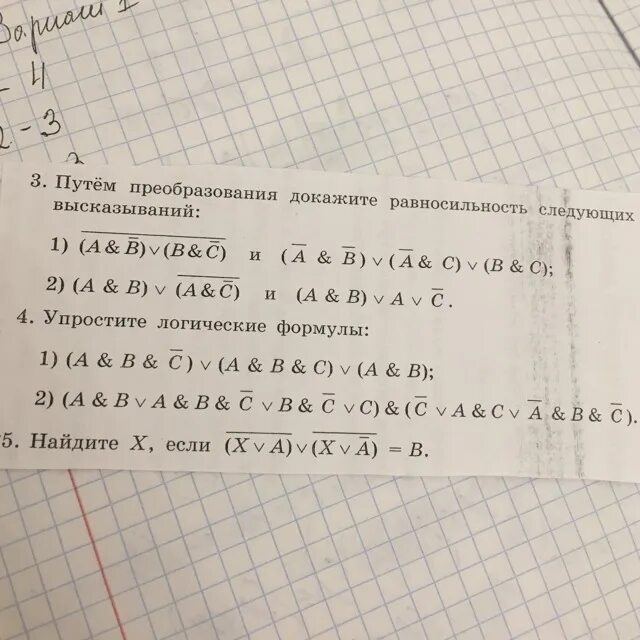 Вариант 1
- 4
2 - 3
3. Путём преобразования докажите равносильность следующих
высказываний:
1) \overline{(A & B̅) ∨ (B & C̅)} и (A̅ & B̅) ∨ (A̅ & C) ∨ (B & C);
2) (A & B) ∨ \overline{(A & C̅)} и (A & B) ∨ A ∨ C̅.
4. Упростите логические формулы:
1) (A & B & C̅) ∨ (A & B & C) ∨ (A & B);
2) (A & B ∨ A & B & C̅ ∨ B & C̅ ∨ C) & (C̅ ∨ A & C ∨ A̅ & B & C̅).
5. Найдите X, если \overline{(X ∨ A)} ∨ \overline{(X ∨ A̅)} = B.